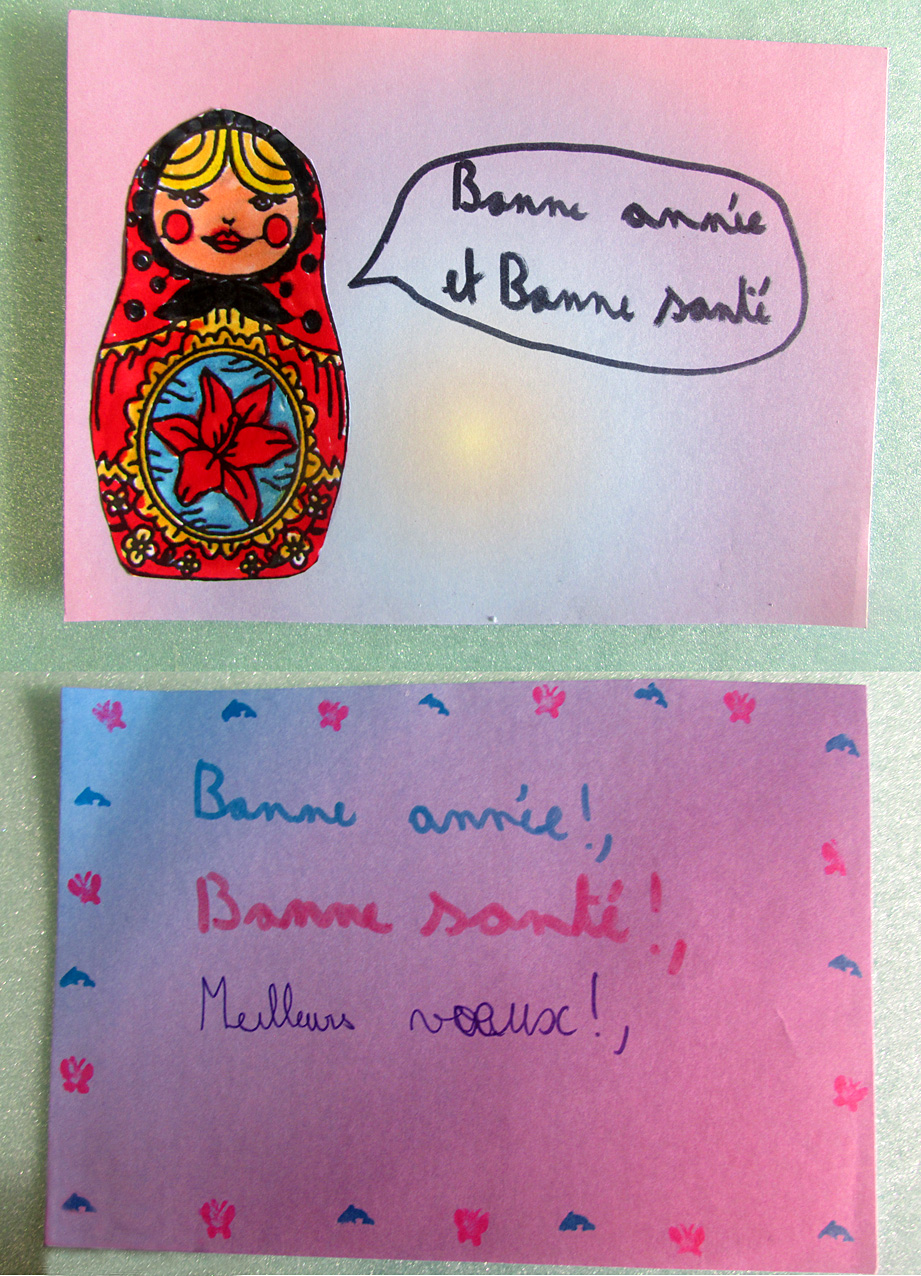 Bonne année
et Bonne santé
Bonne année!,
Bonne santé!,
Meilleurs voeux!,